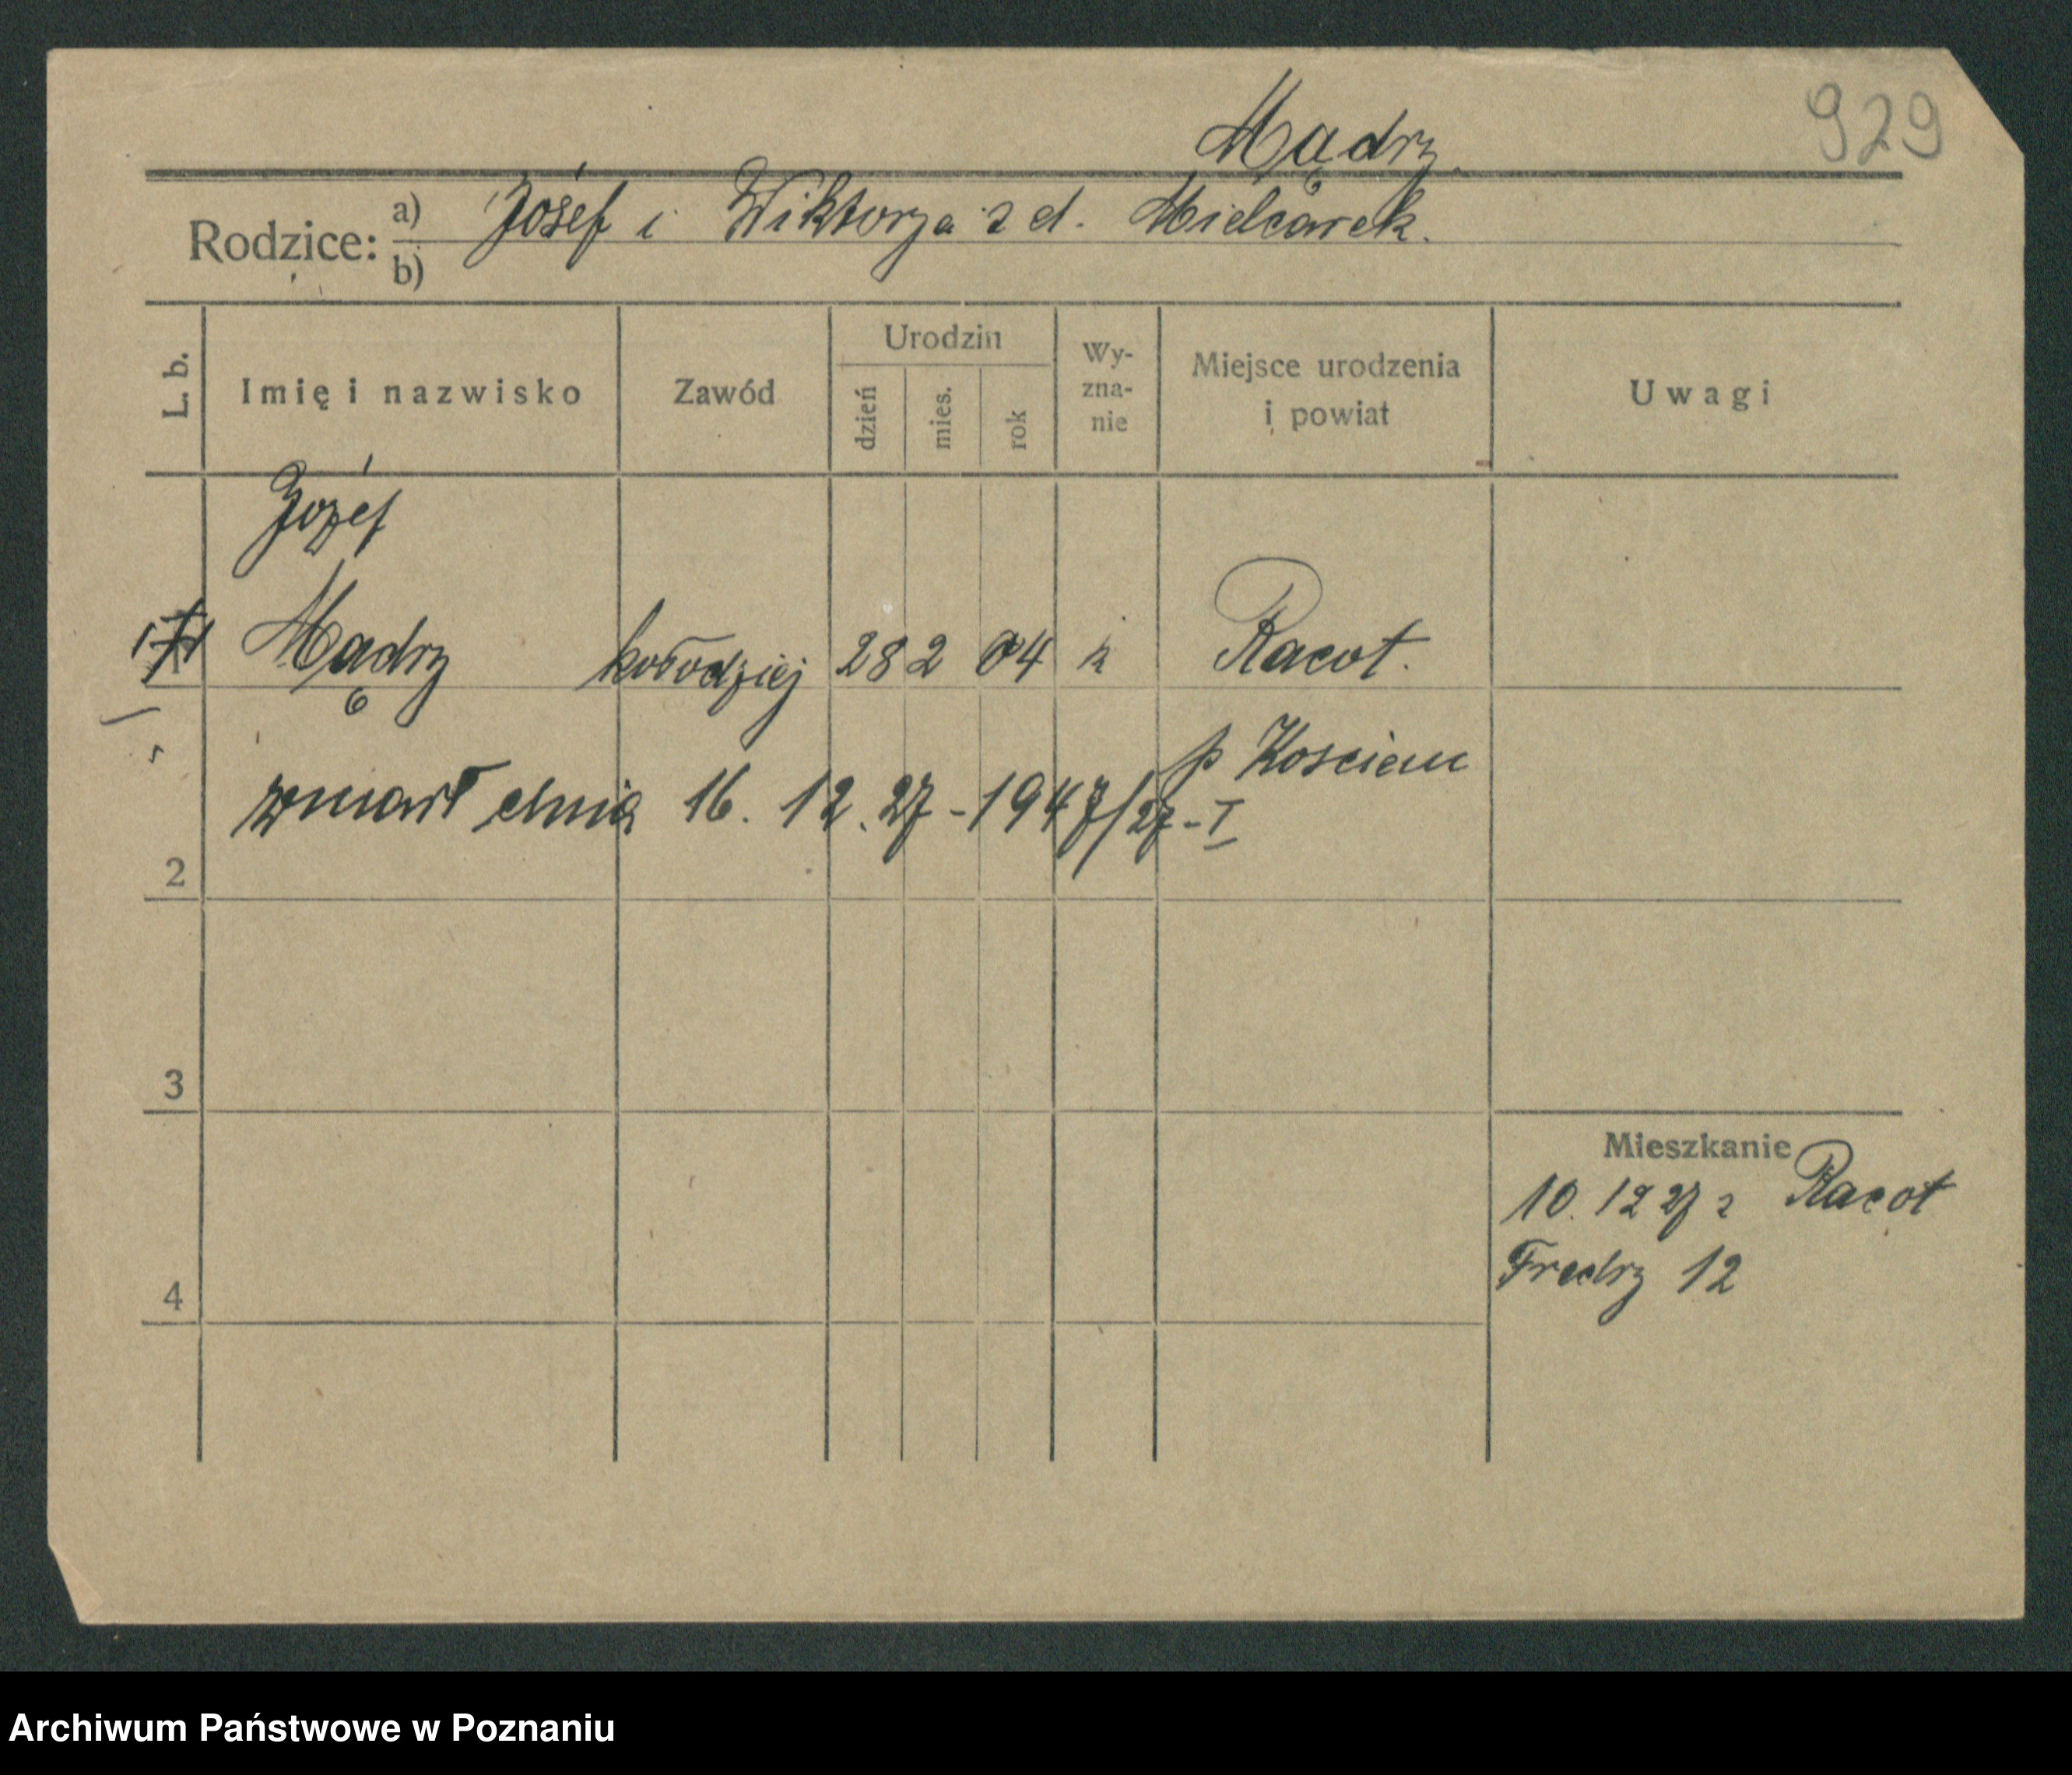 929
Mądry
Rodzice: a) Józef i Wiktorja z d. Mielcarek.
b)
L. b.
Imię i nazwisko
Zawód
Urodzin
dzień
mies.
rok
Wy-
zna-
nie
Miejsce urodzenia
i powiat
Uwagi
Józef
Mądry kołodziej 28 2 04 k Racot.
p Kościan
zmarł dnia 16. 12. 27 - 1947/27 - I
2
3
4
Mieszkanie
10. 12 27 z Racot
Fredry 12
Archiwum Państwowe w Poznaniu